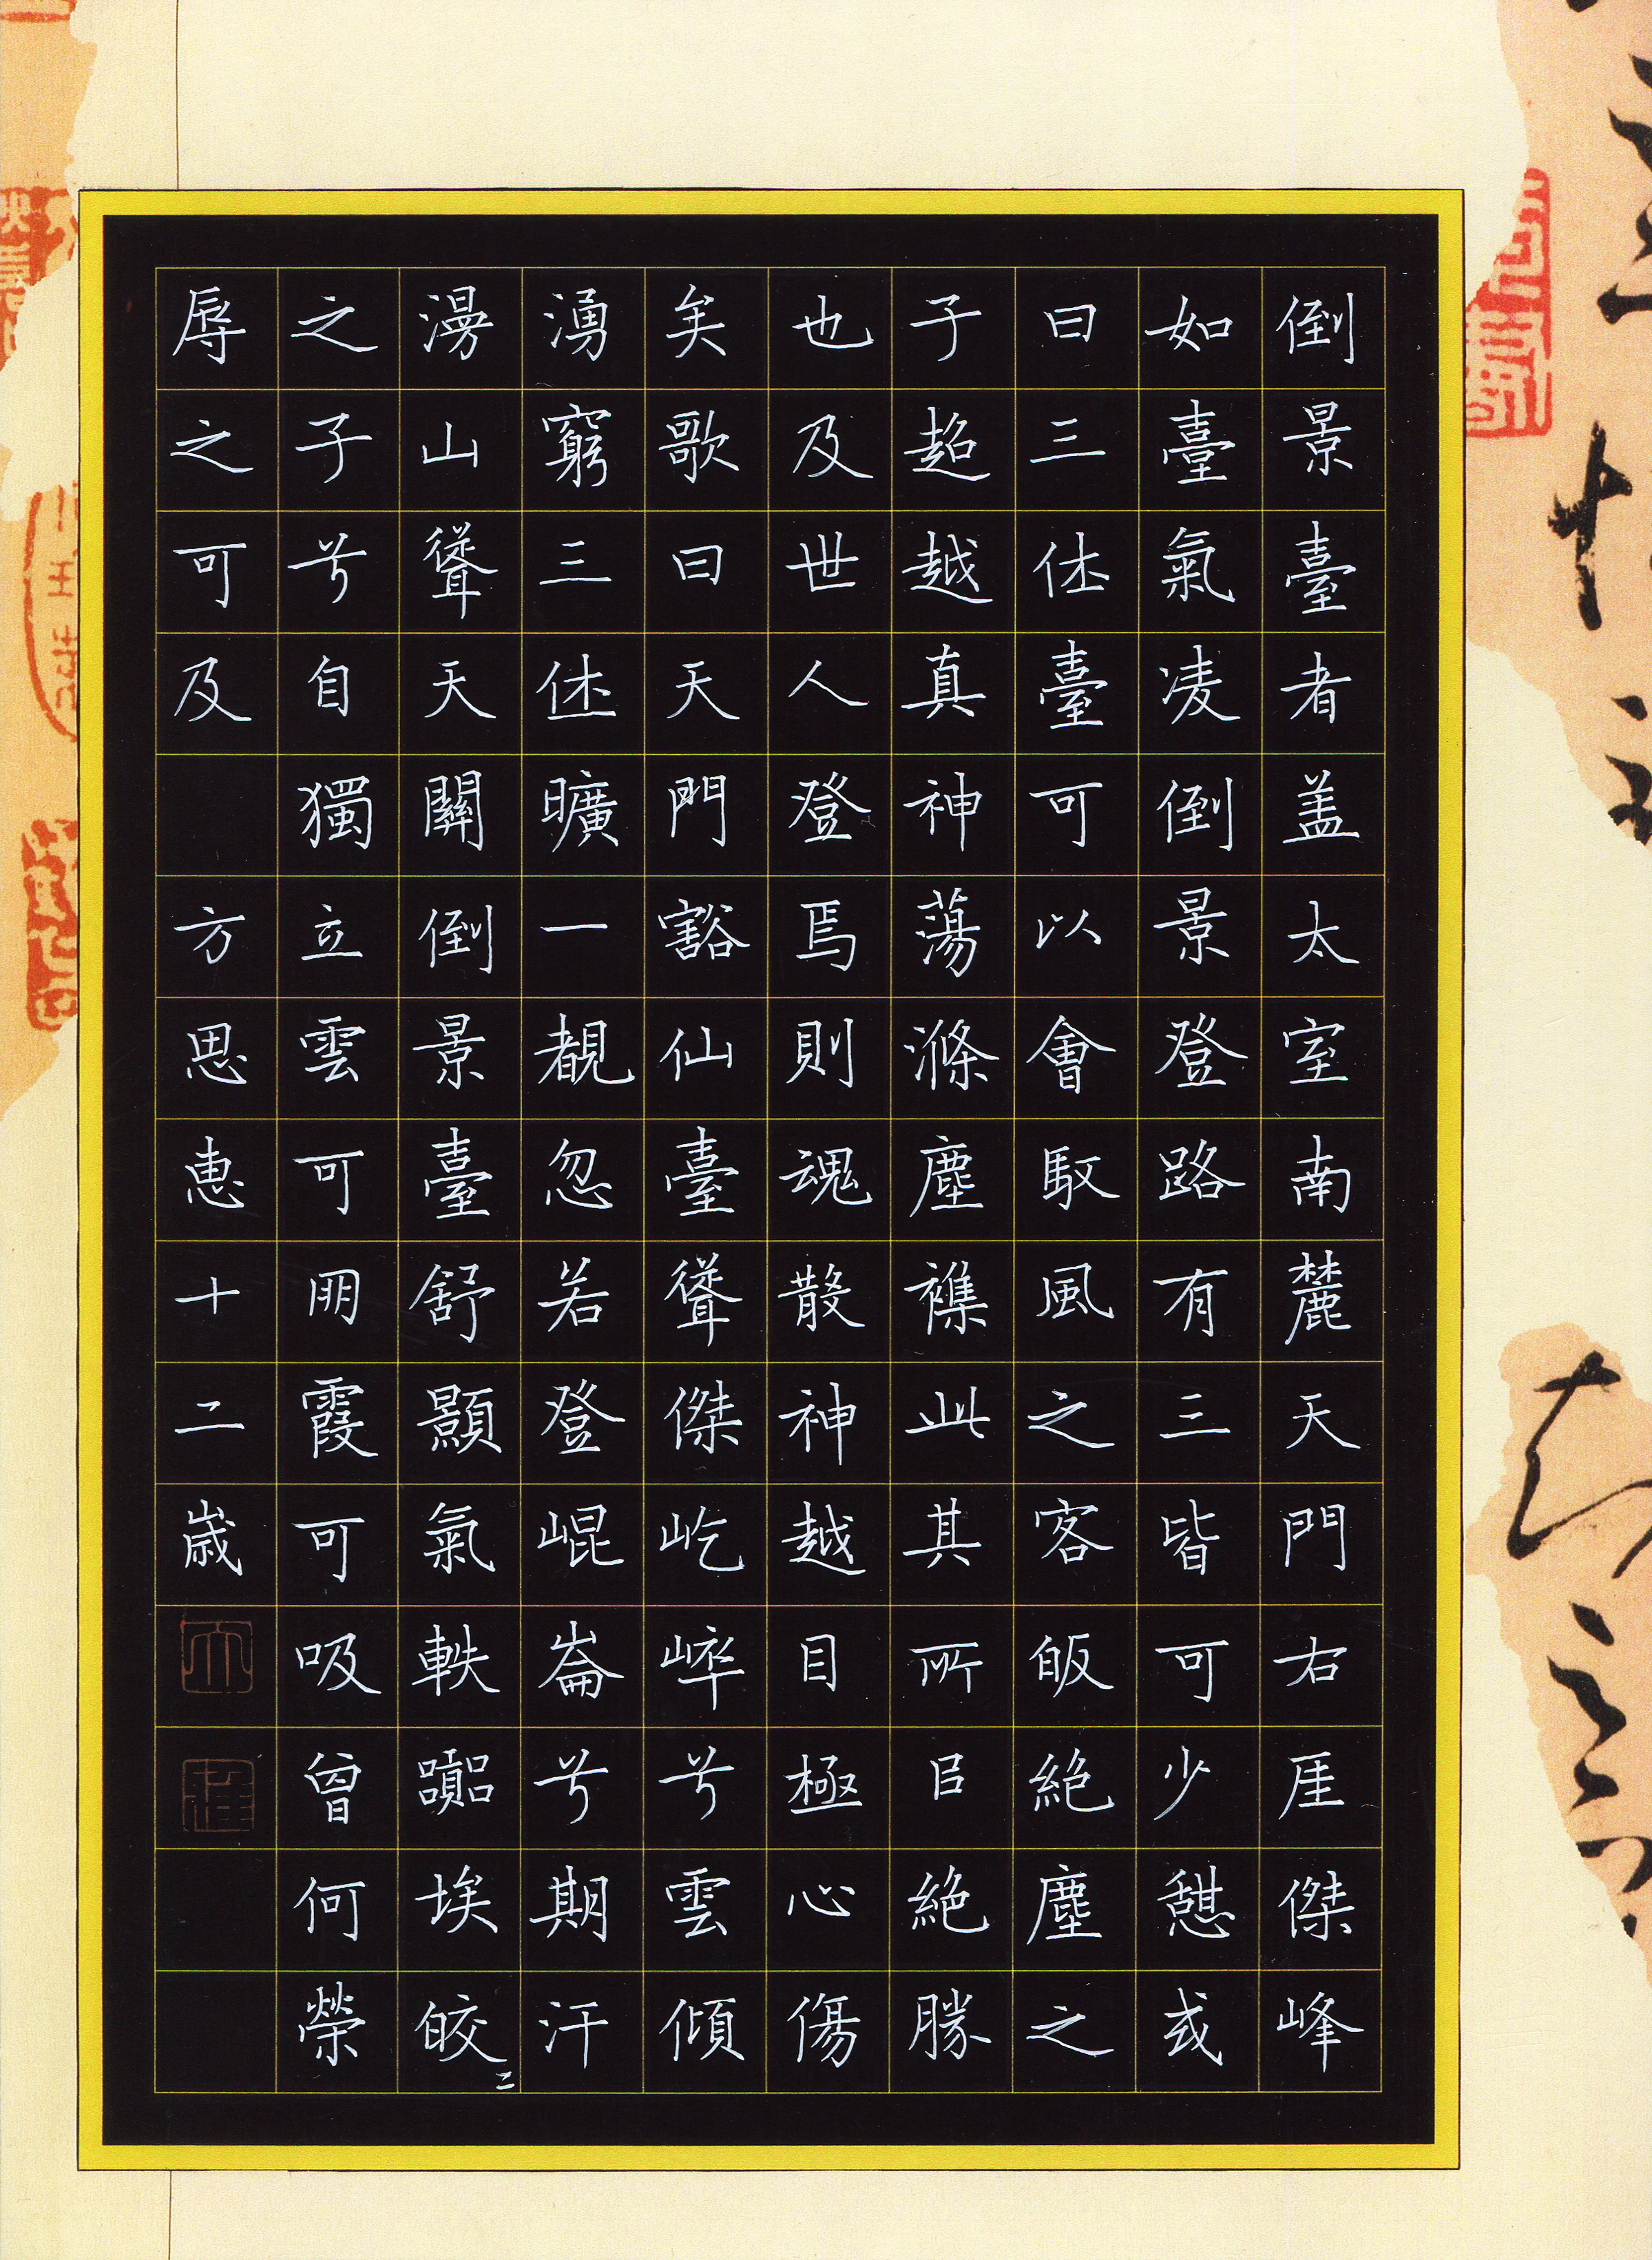 倒景臺者盖太室南麓天門右厓傑峰
如臺氣凌倒景登路有三皆可少憩或
曰三休臺可以會馭風之客皈絶塵之
子超越真神蕩滌塵襟此其所㠯絶勝
也及世人登焉則魂散神越目極心傷
矣歌曰天門豁仙臺聳傑屹崒兮雲傾
湧窮三休曠一覩忽若登崐崙兮期汗
漫山聳天關倒景臺舒顥氣軼嚻埃皎〻
之子兮自獨立雲可朋霞可吸曾何榮
辱之可及 方思惠十二歲